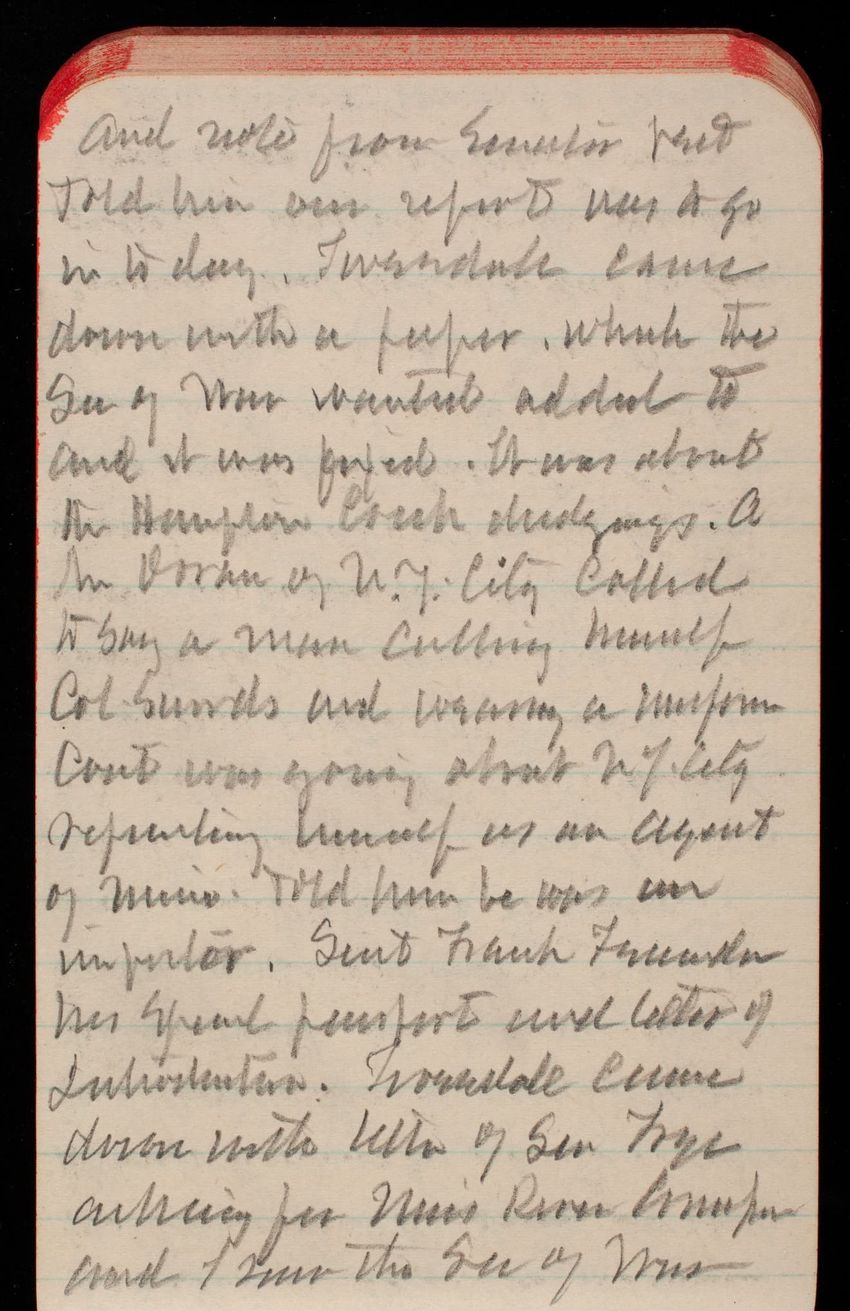 and note from Senator Vest
Told him our report was to go
in to day. Truesdale came
down with a paper. which the
Sec of War wanted added to
and it was fixed. It was about
the Hampton Creek dredgings. A
Mr Doran of N.Y. City Called
to say a man calling himself
Col and wearing a uniform
Coat was going about N Y City
himself as an agent
of mine. Told him he was an
impostor. Sent Frank
his Special passport and letter of
Introduction. Truesdale came
down with letter of Sen Frye
asking for Miss River
and I saw the Sec of War